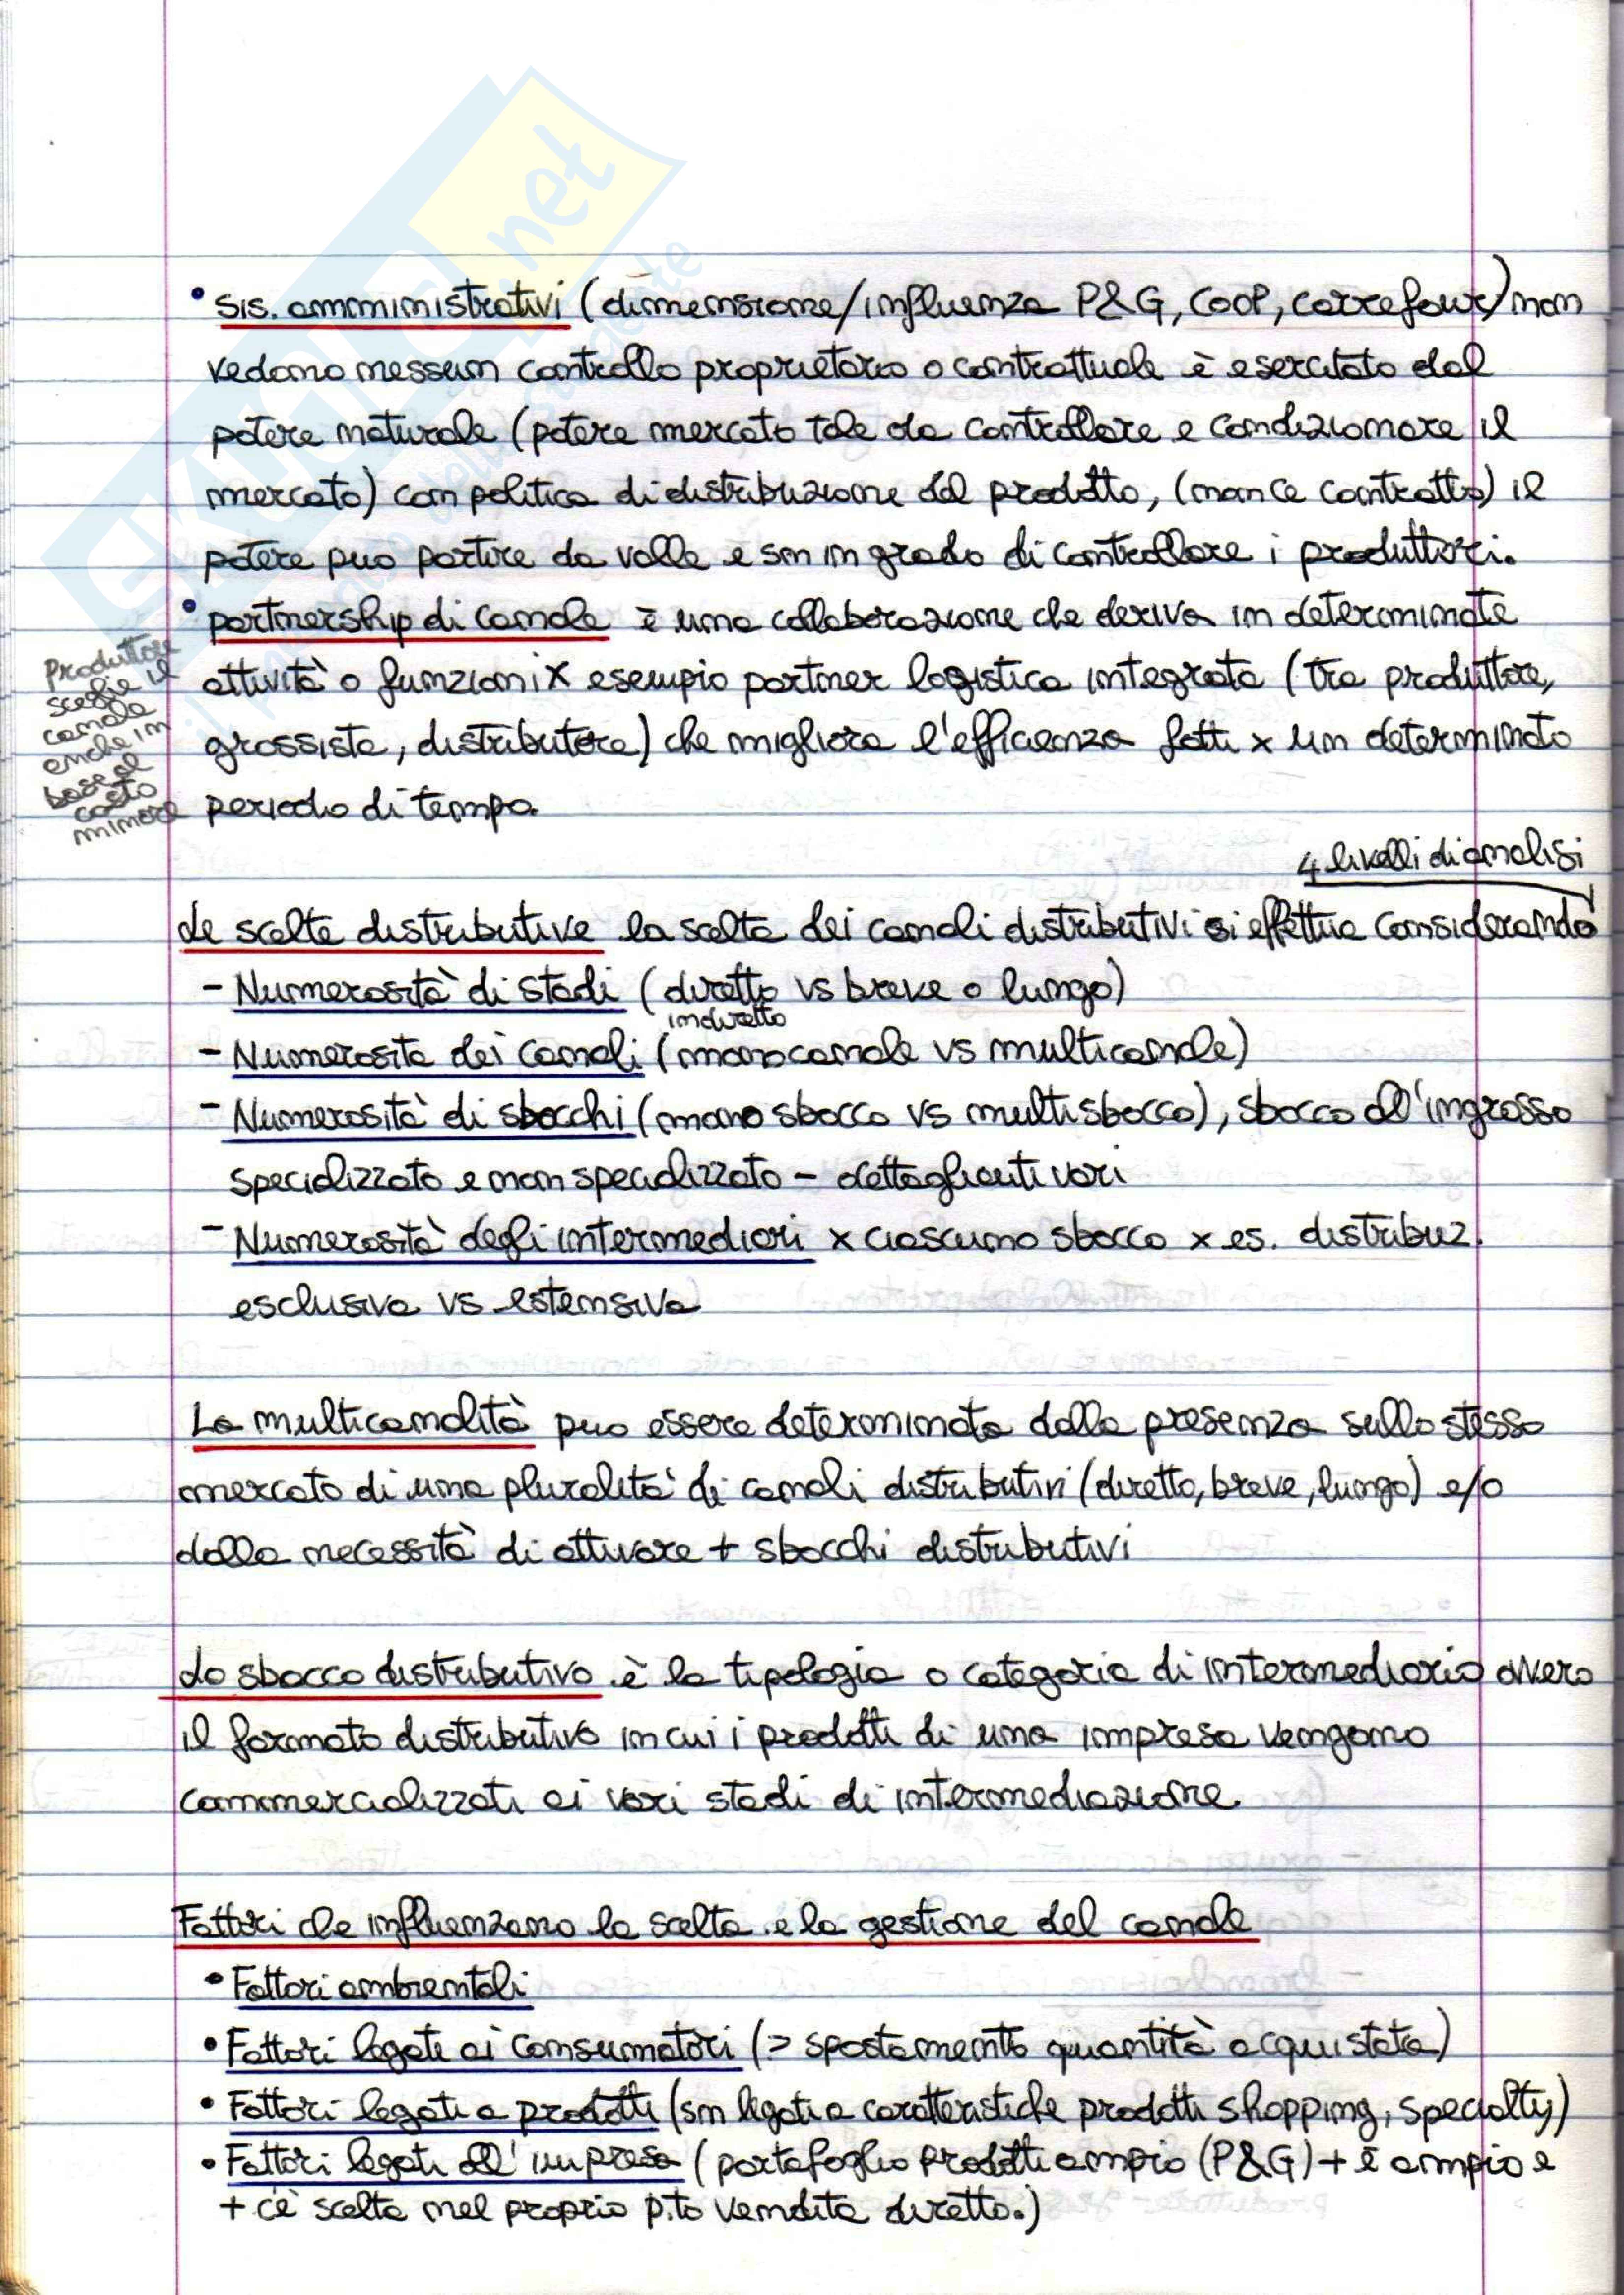 • sis. amministrativi (dimensione/influenza P&G, COOP, carrefour) non
vedono nessun controllo proprietario o contrattuale è esercitato dal
potere naturale (potere mercato tale da controllare e condizionare il
mercato) con politica di distribuzione del prodotto, (non c'è contratto) il
potere può partire da valle e sn in grado di controllare i produttori.
• partnership di canale è una collaborazione che deriva in determinate
attività o funzioni x esempio partner logistica integrata (tra produttore,
grossista, distributore) che migliora l'efficienza fatti x un determinato
periodo di tempo.
Produttore
sceglie il
canale
anche in
base al
costo
minore
4 livelli di analisi
Le scelte distributive la scelta dei canali distributivi si effettua considerando
- Numerosità di stadi (diretto vs breve o lungo)
indiretto
- Numerosità dei canali (monocanale vs multicanale)
- Numerosità di sbocchi (mono sbocco vs multisbocco), sbocco all'ingrosso
specializzato e non specializzato - dettaglianti vari
- Numerosità degli intermediari x ciascuno sbocco x es. distribuz.
esclusiva vs estensiva
La multicanalità può essere determinata dalla presenza sullo stesso
mercato di una pluralità di canali distributivi (diretto, breve, lungo) e/o
dalla necessità di attivare + sbocchi distributivi
Lo sbocco distributivo è la tipologia o categoria di intermediario ovvero
il formato distributivo in cui i prodotti di una impresa vengono
commercializzati ai vari stadi di intermediazione
Fattori che influenzano la scelta e la gestione del canale
• Fattori ambientali
• Fattori legati ai consumatori (> spostamento quantità acquistata)
• Fattori legati a prodotti (sn legati a caratteristiche prodotti shopping, specialty)
• Fattori legati all'impresa (portafoglio prodotti ampio (P&G) + è ampio e
+ c'è scelta nel proprio p.to vendita diretto.)
SKUOLA.net